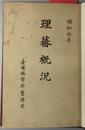 昭和拾年
理蕃概況
臺灣總督府警務局